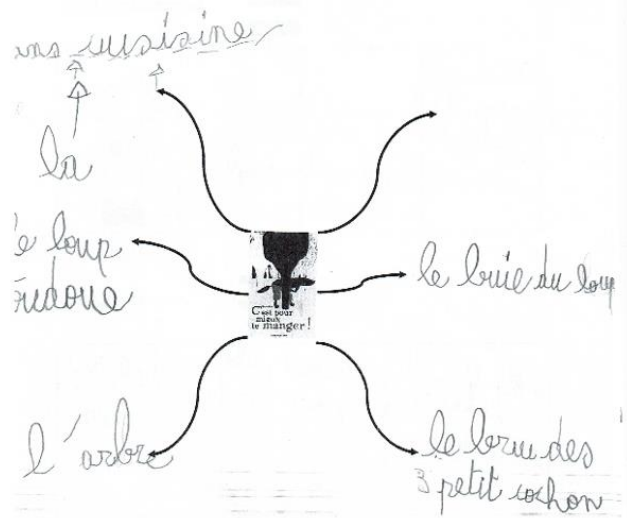 ans cusisine
là
le loup
l'arbre
C'est pour
mieux
te manger !
le bruie du loup
le bruu des
3 petit cochon